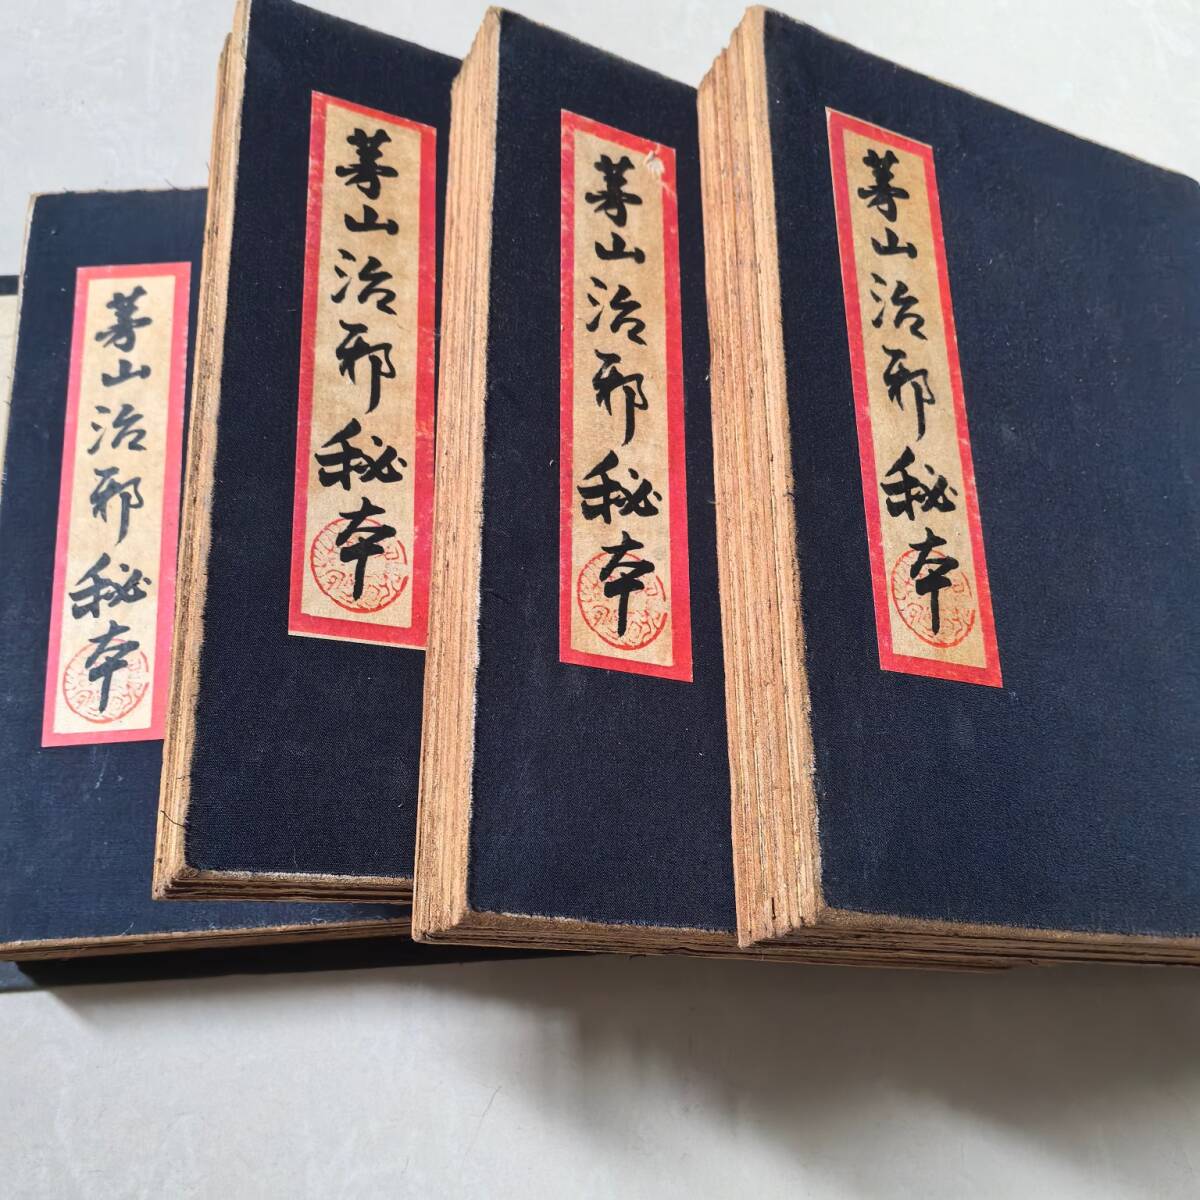 茅山治邪秘本
茅山治邪秘本
茅山治邪秘本
茅山治邪秘本